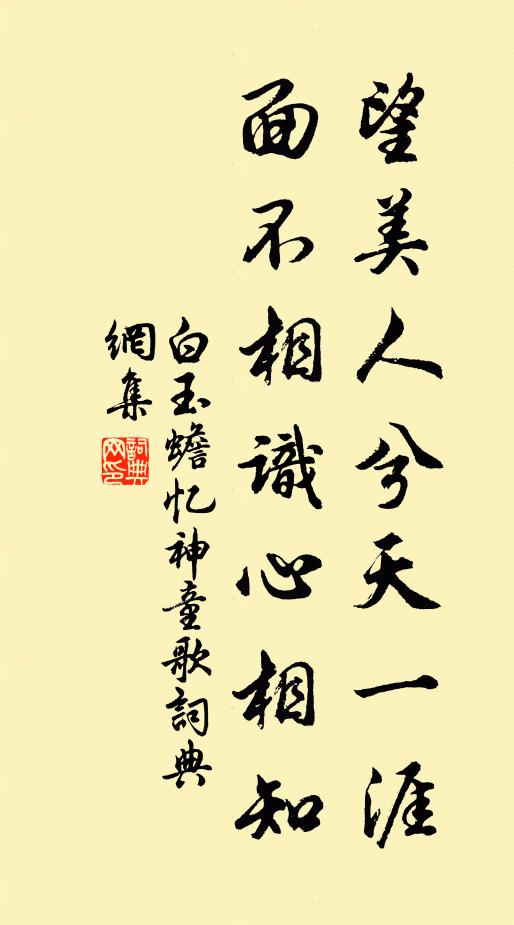 望美人兮天一涯
面不相識心相知
白玉蟾忆神童歌詞典
網集
詞典
网印